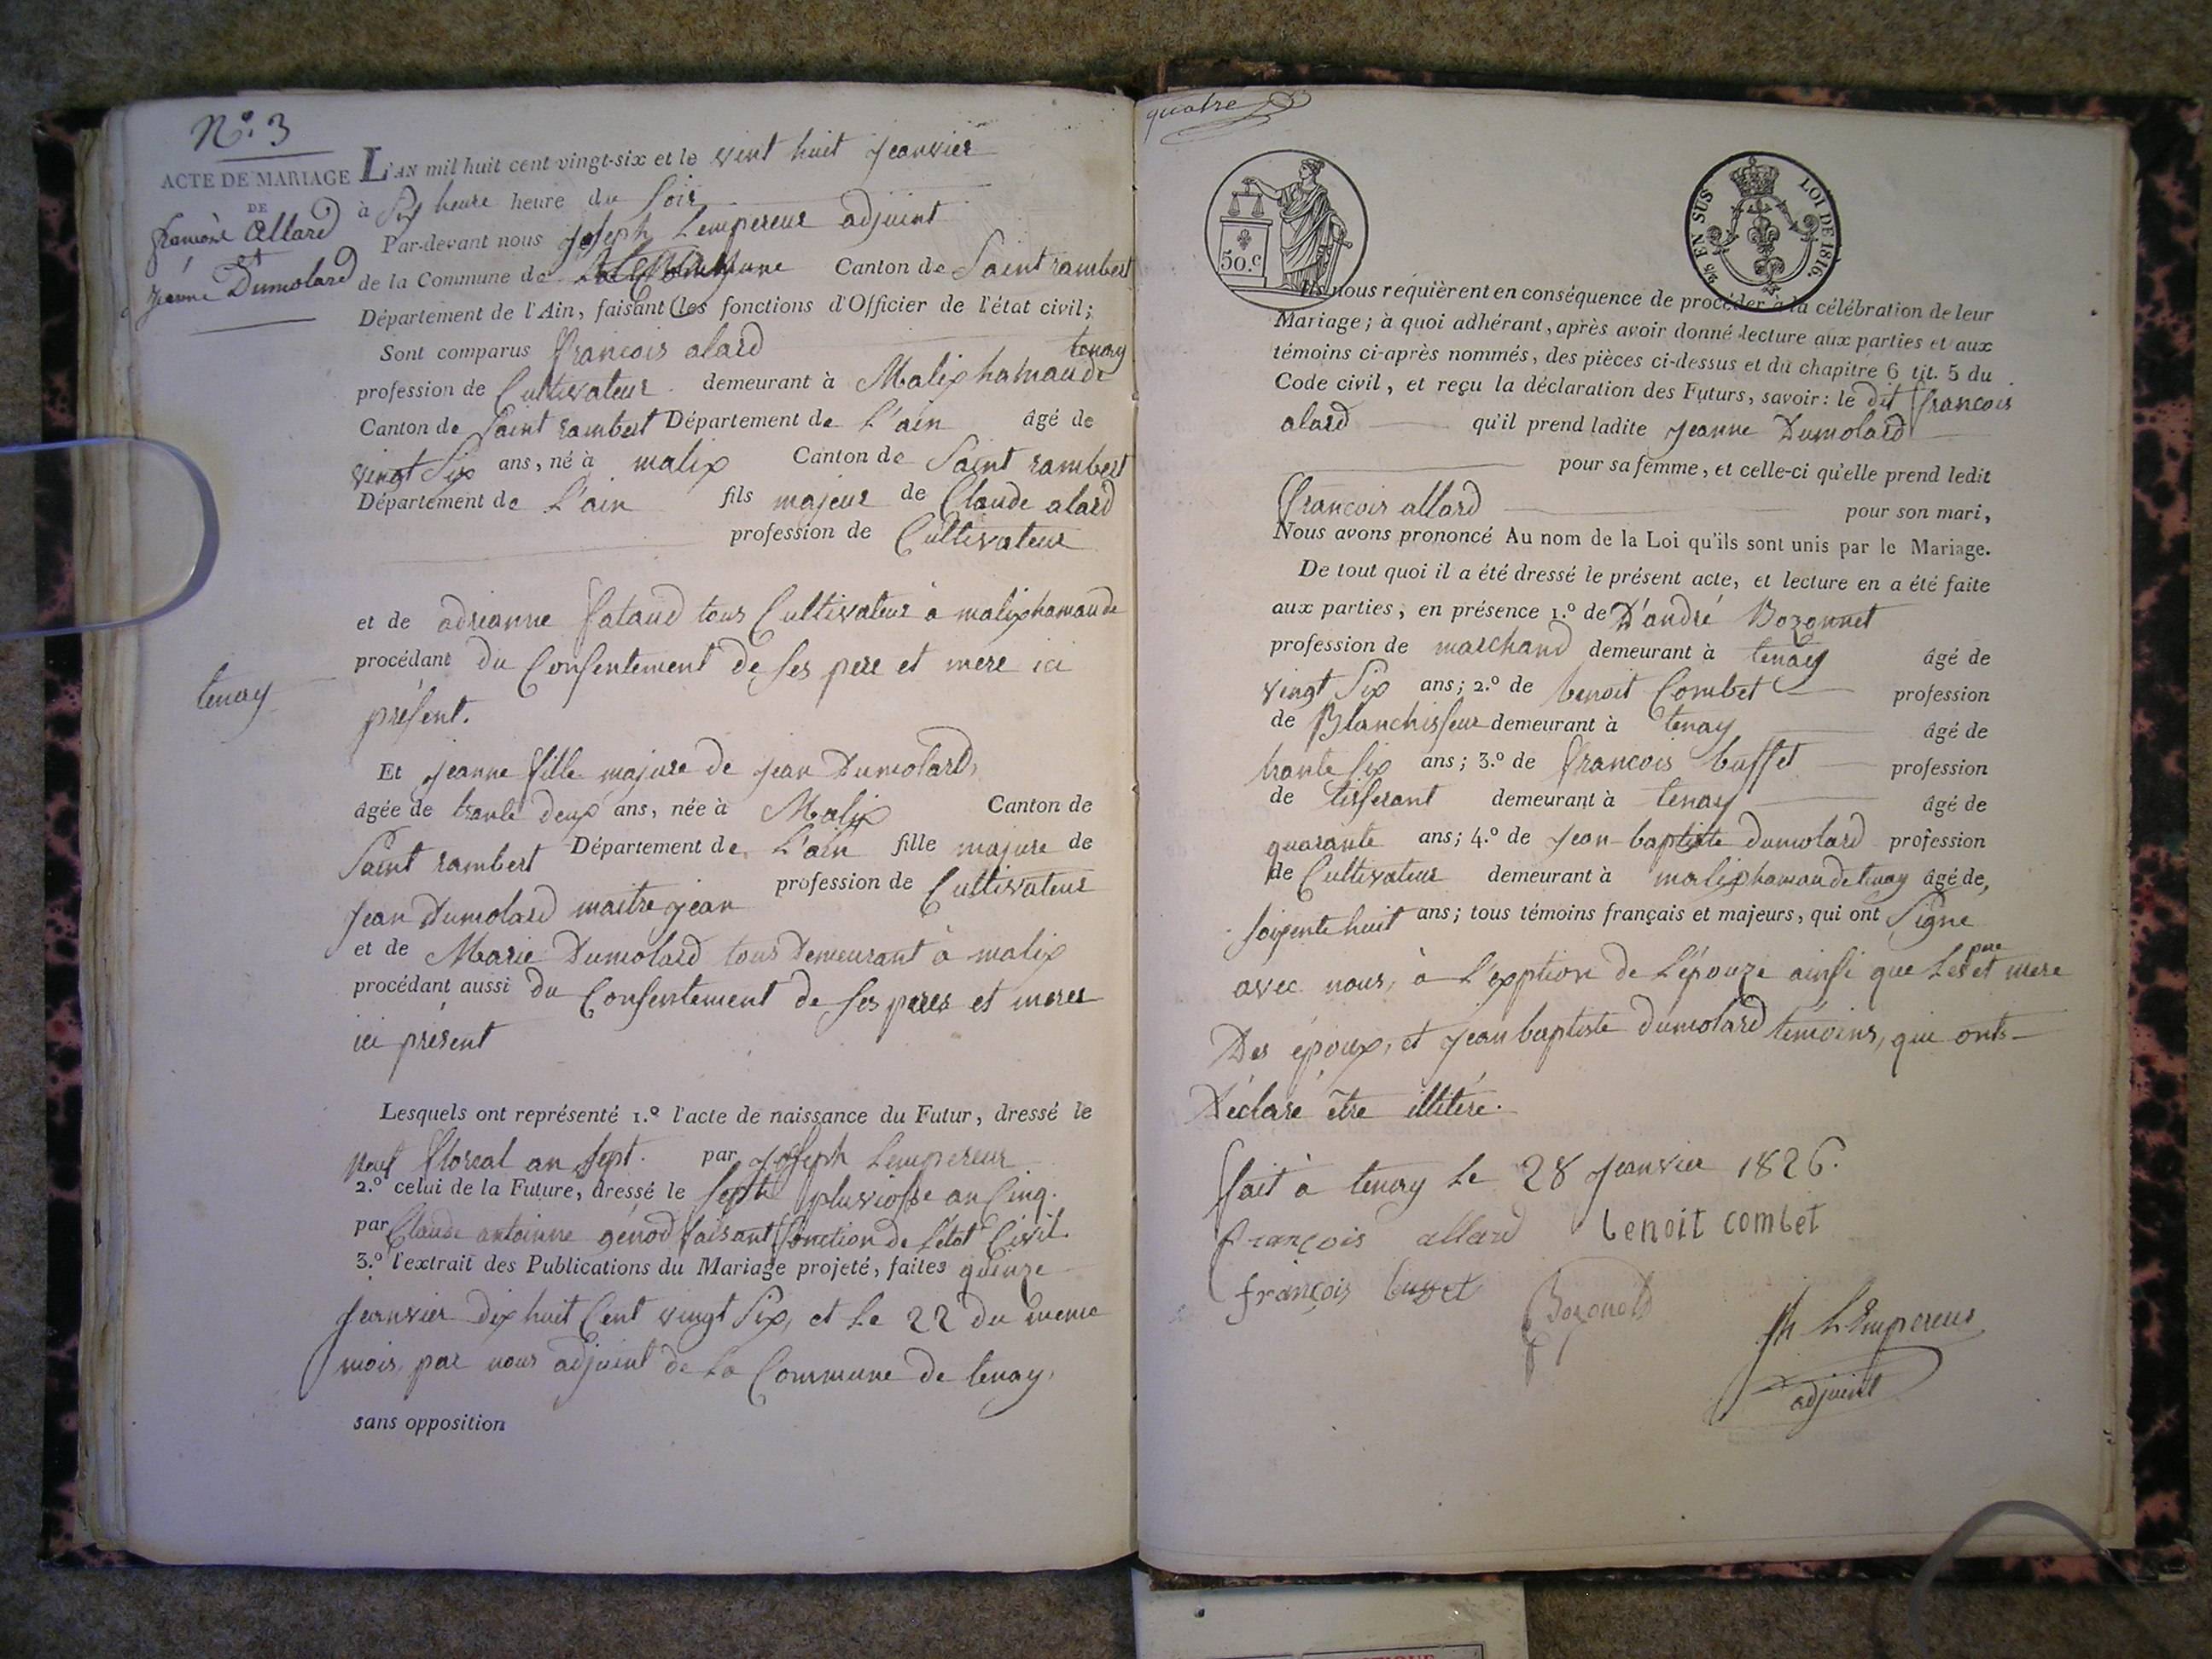 N.º 3
ACTE DE MARIAGE
DE
francois Allard
et
jeanne Dumolard
L'AN mil huit cent vingt-six et le vint huit jeanvier
à Six heure heure du Soir
Par-devant nous joseph Lempereur adjoint
de la Commune de Canton de Saint rambert
Département de l'Ain, faisant les fonctions d'Officier de l'état civil;
Sont comparus francois alard
tenay
profession de Cultivateur demeurant à Malix hamau de
Canton de Saint rambert Département de L'ain âgé de
vingt Six ans, né à malix Canton de Saint rambert
Département de L'ain fils majeur de Claude alard
profession de Cultivateur
et de adrianne fataud tous Cultivateur à malix hamau de
tenay
procédant du Consentement de ses pere et mere ici
présent.
Et jeanne fille majure de jean Dumolard,
âgée de trante deux ans, née à Malix Canton de
Saint rambert Département de L'ain fille majure de
jean Dumolard maitre jean profession de Cultivateur
et de Marie Dumolard tous Demeurant à malix
procédant aussi du Consentement de ses peres et meres
ici présent
Lesquels ont représenté 1.º l'acte de naissance du Futur, dressé le
neuf floreal an sept. par joseph Lempereur
2.º celui de la Future, dressé le sept pluviosse an Cinq.
par Claude antoinne génod faisant fonction de L'état Civil
3.º l'extrait des Publications du Mariage projeté, faites quinze
jeanvier dix huit Cent vingt Six, et Le 22 du meme
mois, par nous adjoint de La Commune de tenay,
sans opposition
quatre
50.c
2/5 EN SUS
LOI DE 1816
Ils nous requièrent en conséquence de procéder à la célébration de leur
Mariage; à quoi adhérant, après avoir donné lecture aux parties et aux
témoins ci-après nommés, des pièces ci-dessus et du chapitre 6 tit. 5 du
Code civil, et reçu la déclaration des Futurs, savoir: le dit francois
alard qu'il prend ladite jeanne Dumolard
pour sa femme, et celle-ci qu'elle prend ledit
francois allard pour son mari,
Nous avons prononcé Au nom de la Loi qu'ils sont unis par le Mariage.
De tout quoi il a été dressé le présent acte, et lecture en a été faite
aux parties, en présence 1.º de D'andré Bozonnet
profession de marchand demeurant à tenay âgé de
vingt Six ans; 2.º de benoit Combet profession
de Blanchisseur demeurant à tenay âgé de
trante six ans; 3.º de francois buffet profession
de tisserant demeurant à tenay âgé de
quarante ans; 4.º de jean-baptiste dumolard profession
de Cultivateur demeurant à malix hamau de tenay âgé de,
soixente huit ans; tous témoins français et majeurs, qui ont Signe
avec nous, à L'exption de L'épouze ainsi que Les pere et mere
Des époux, et jean baptiste dumolard témoins, qui onts
Déclaré être illitéré.
fait à tenay Le 28 jeanvier 1826.
françois allard benoit combet
françois buget
Bozonet
jh LEmpereur
adjoint